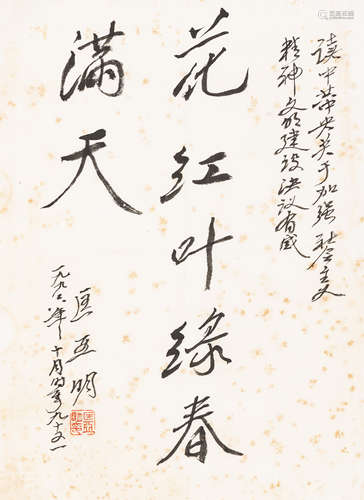 读中共中央关于加强社会主义
精神文明建设决议有感
花红叶绿春
满天
匡亚明
一九九六年十月时年九十又一